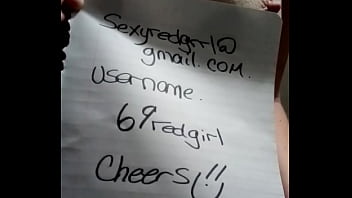 Sexyredgirl@
gmail.com.
Username.
69redgirl
Cheers(!!)